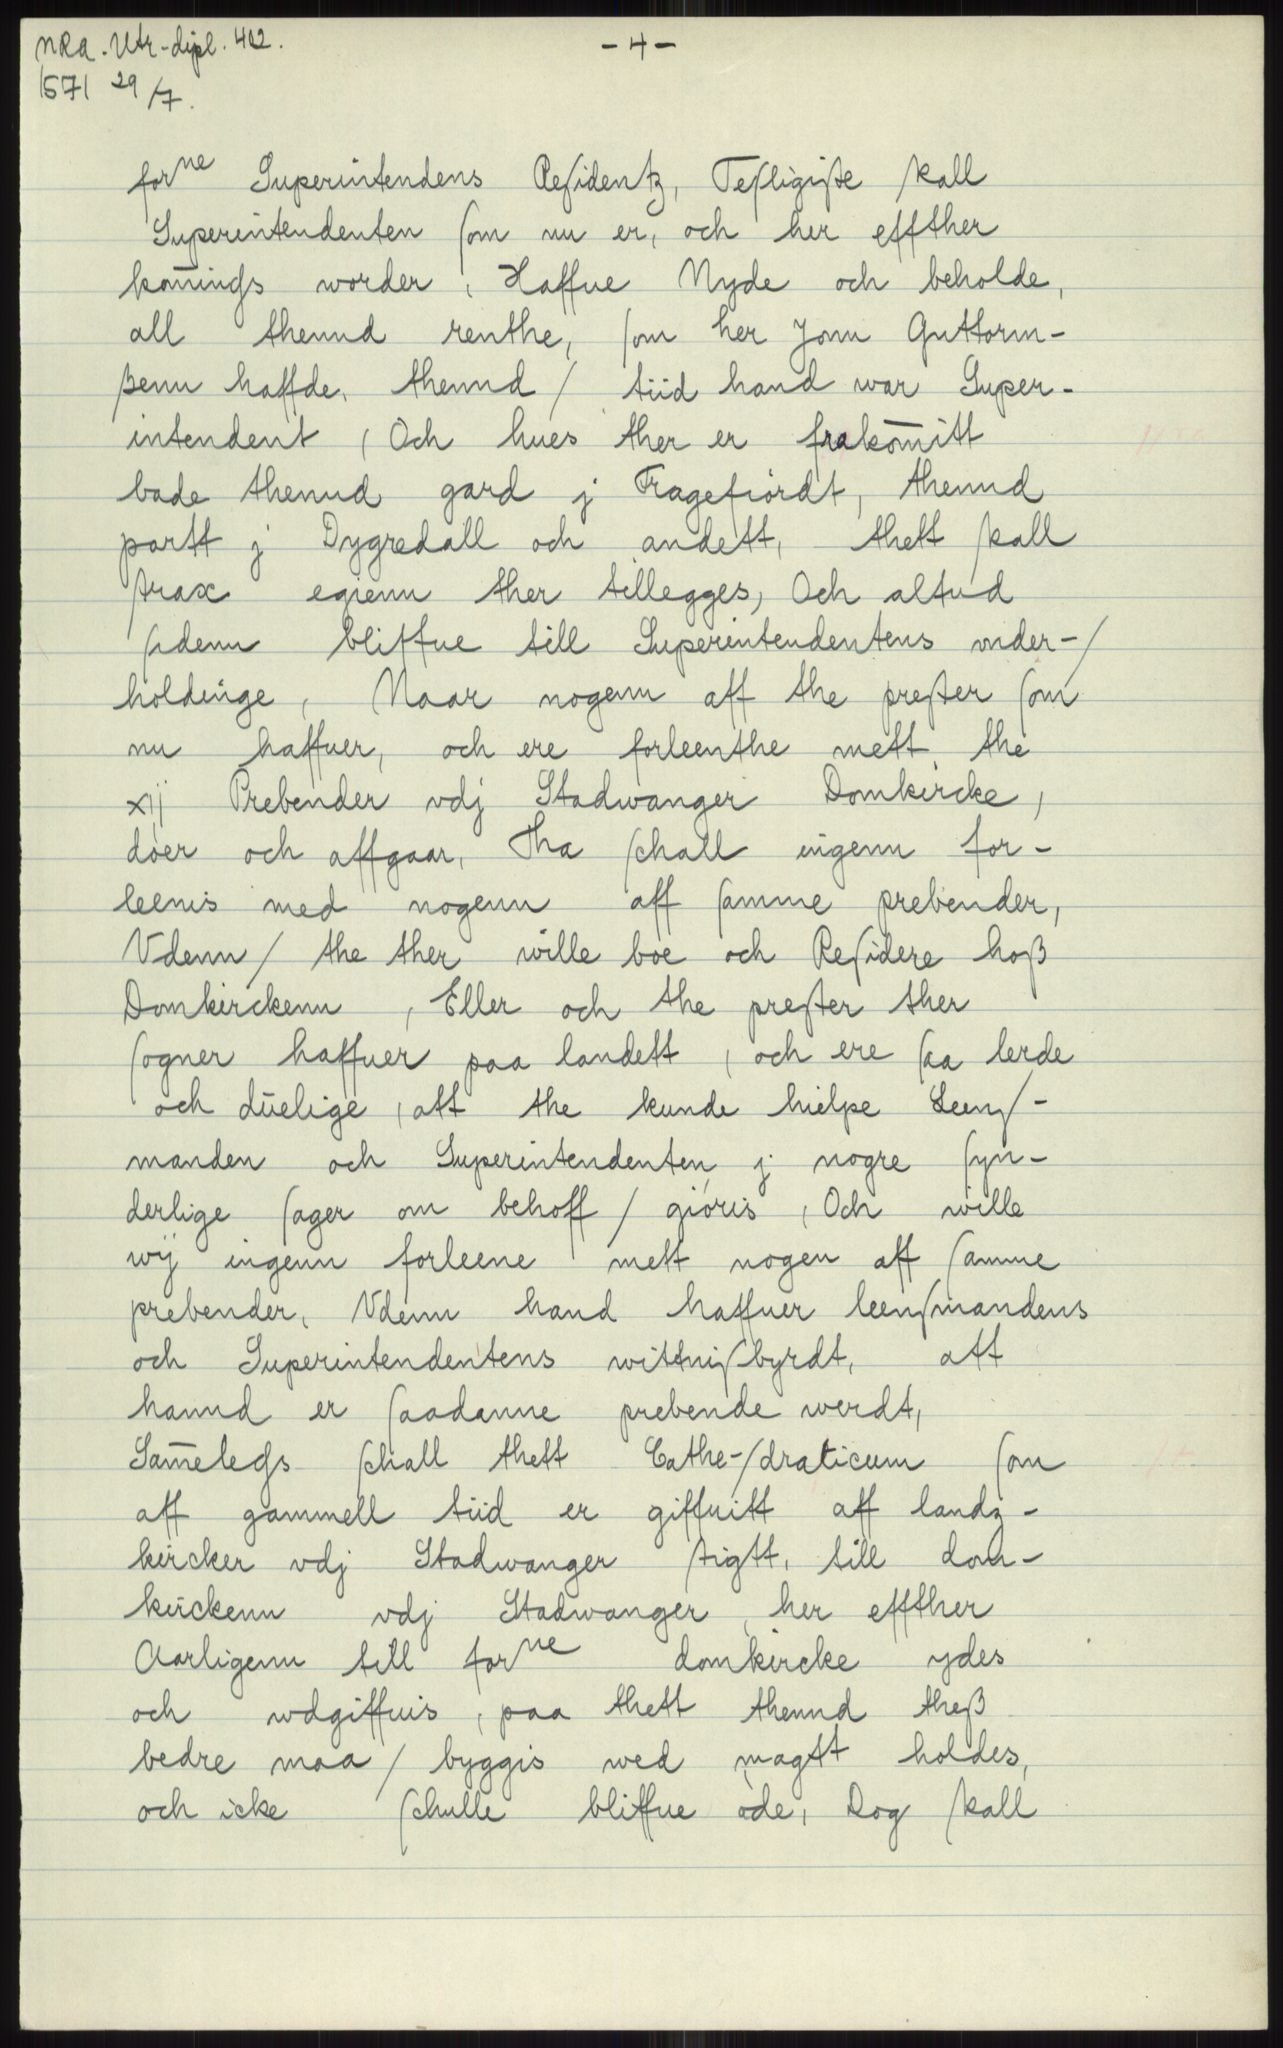 NRA. Utr-dipl. 402.
- 4 -
1571 29/7.
forne Superintendens Reſidentz, Teſligiſte ſkall
Superintendenten ſom nu er, och her effther
kom̄ingſs worder, Haffue Nyde och beholde,
all thennd renthe, ſom her Jonn Guttorm-
ßenn haffde, thennd / tiid hand war Super-
intendent, Och hues ther er frakom̄itt
bade thennd gard j Fragefiórdt, thennd
partt j Dygredall och andett, thett ſkall
ſtrax egienn ther tillegges, Och altiid
ſidenn bliffue till Superintendentens vnder-/
holdinge, Naar nogenn aff the preſter ſom
nu haffuer, och ere forleenthe mett the
xij Prebender vdj Stadwanger Domkircke,
dóer och affgaar, Tha ſchall ingenn for-
leenis med nogenn aff ſamme prebender,
Vdenn / the ther wille boe och Reſidere hoß
Domkirckenn, Eller och the preſter ther
ſogner haffuer paa landett, och ere ſaa lerde
och dūelige, att the kunde hielpe Leenſ-
manden och Superintendenten j nogre ſyn-
derlige ſager om behoff / gióris, Och wille
wij ingenn forleene mett nogen aff ſamme
prebender, Vdenn hand haffuer leenſmandens
och Superintendentens wittniſbyrdt, att
hannd er ſaadanne prebende werdt,
Sam̄elegſs ſchall thett Cathe-/draticum ſom
aff gammell tiid er giffuitt aff landz-
kircker vdj Stadwanger ſtigtt, till dom-
kirckenn vdj Stadwanger, her effther
Aarligenn till forne domkircke ydes
och wdgiffuis, paa thett thennd theß
bedre maa / byggis wed magtt holdes,
och icke ſchulle bliffue óde, Dog ſkall